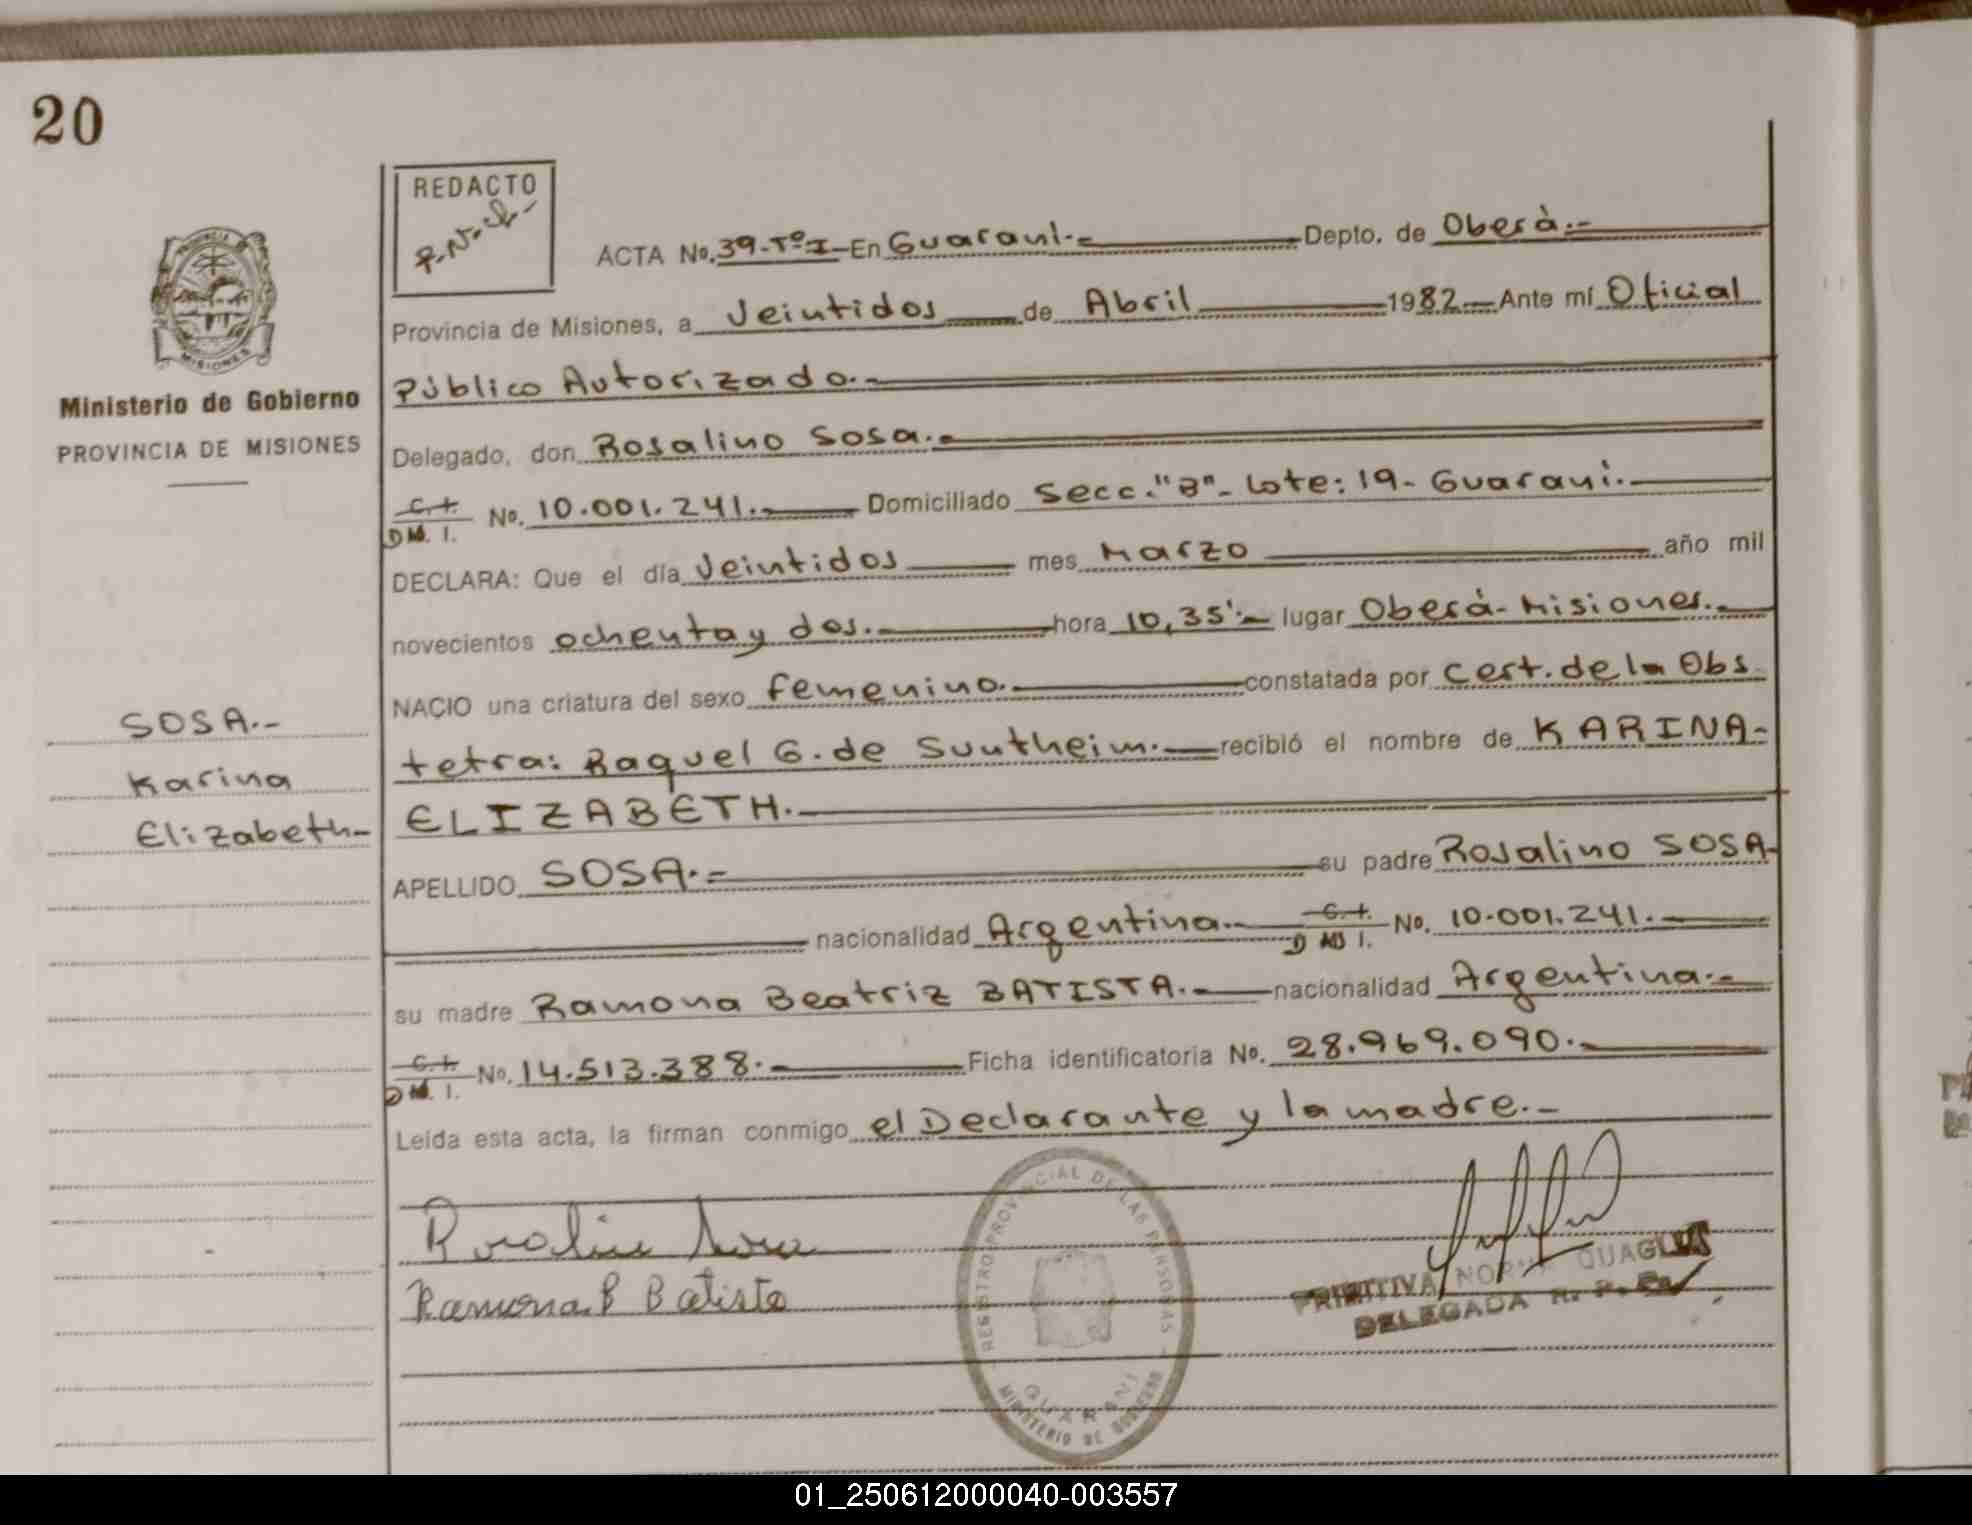 20
REDACTO
ACTA No. 39-Tº I- En Guaraní.- Depto. de Oberà.-
Provincia de Misiones, a Veintidos de Abril 1982 Ante mí Oficial
Público Autorizado.-
Delegado, don Rosalino Sosa.-
C.I. No. 10.001.241. Domiciliado Secc. "B"- Lote: 19- Guaraní.
D.N.I.
DECLARA: Que el día Veintidos mes Marzo año mil
novecientos ochenta y dos. hora 10,35'.- lugar Oberà-Misiones.
NACIO una criatura del sexo femenino. constatada por Cert. de la Obs
tetra: Raquel G. de Suntheim. recibió el nombre de KARINA-
ELIZABETH.
APELLIDO SOSA.- su padre Rosalino SOSA-
nacionalidad Argentina. C.I. No. 10.001.241.
D.N.I.
su madre Ramona Beatriz BATISTA. nacionalidad Argentina.-
C.I. No. 14.513.388. Ficha identificatoria No. 28.969.090.
D.N.I.
Leída esta acta, la firman conmigo el Declarante y la madre.-
Ramona B Batista
PRIMITIVA NORMA
DELEGADA R. P.
REGISTRO PROVINCIAL DE LAS PERSONAS
GUARANI
MINISTERIO DE GOBIERNO
PROVINCIA
MISIONES
Ministerio de Gobierno
PROVINCIA DE MISIONES
SOSA.-
Karina
Elizabeth-
01_250612000040-003557